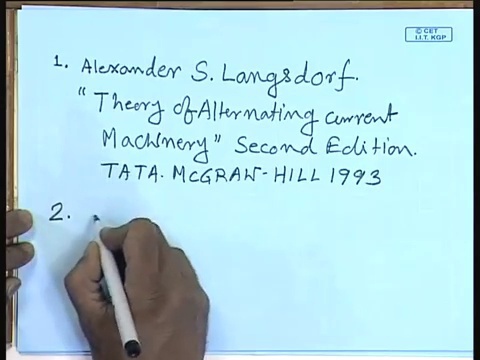 © CET
I.I.T. KGP
1. Alexander S. Langsdorf.
"Theory of Alternating current
Machinery" Second Edition.
TATA. McGRAW-HILL 1993
2.